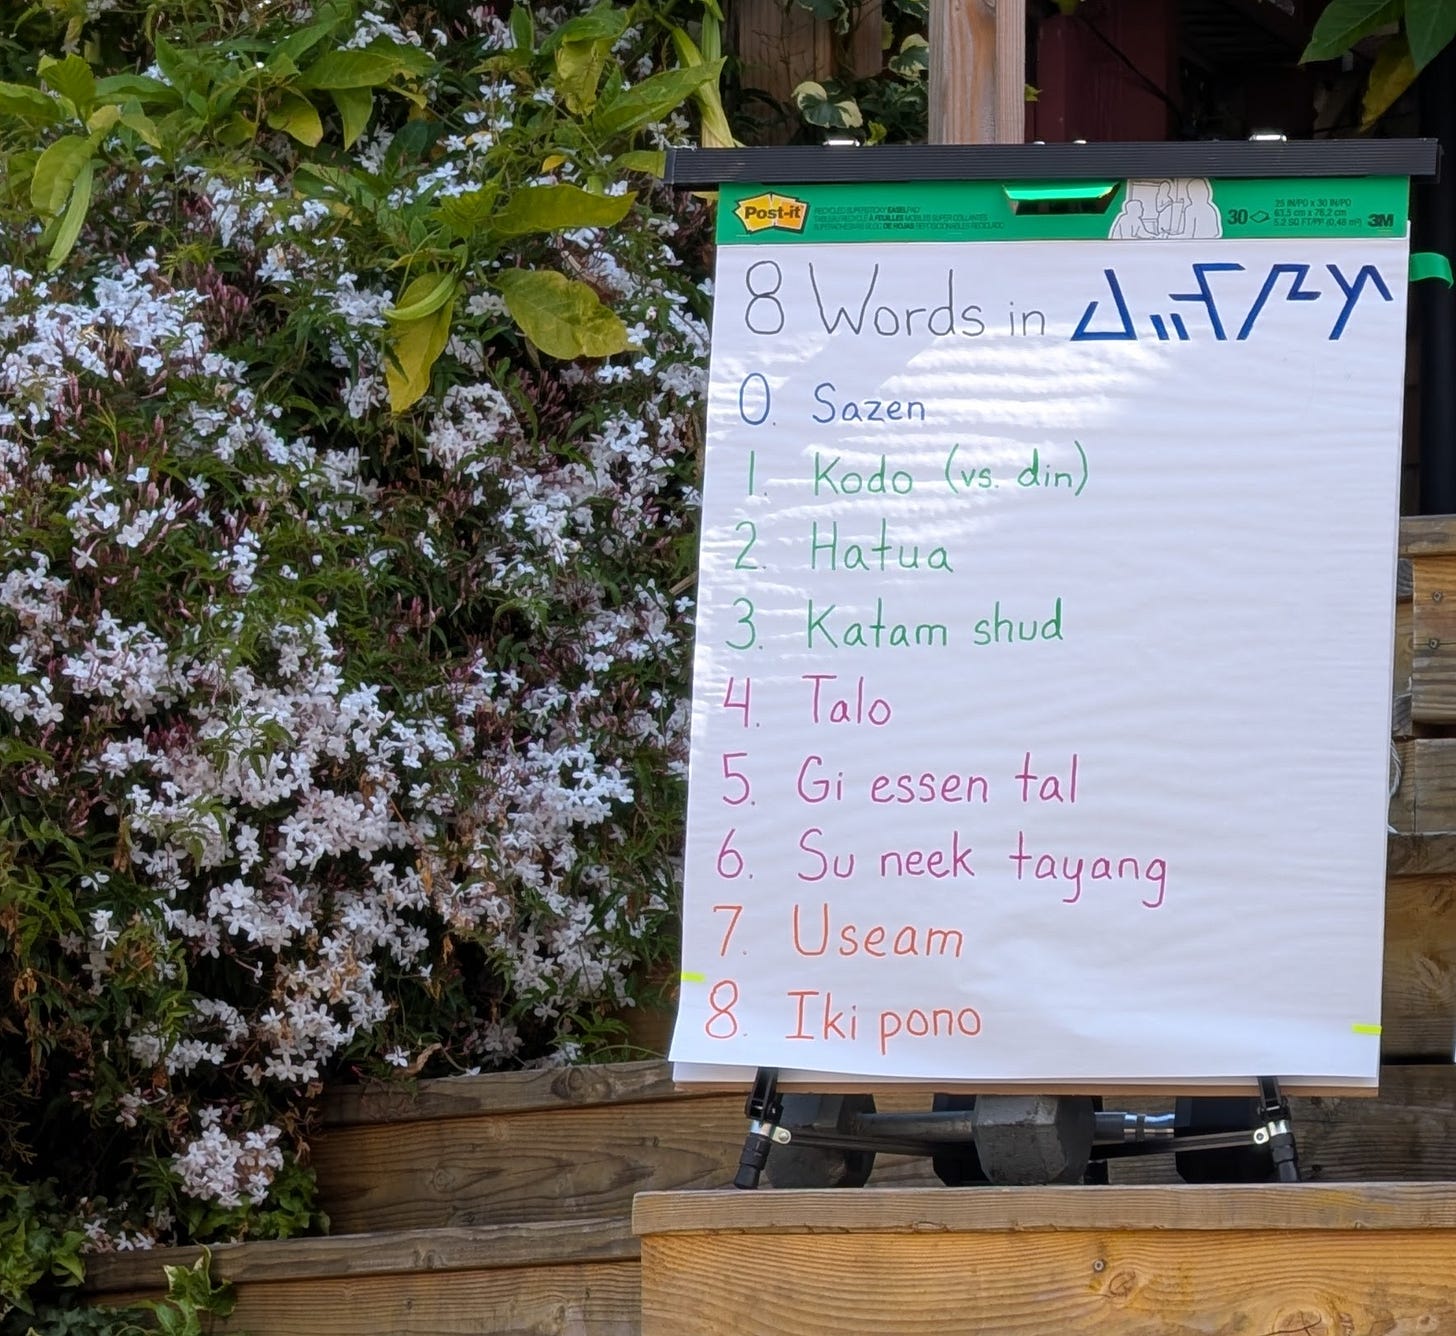 Post-it
30
25 IN/PO x 30 IN/PO
63,5 cm x 76,2 cm
5.2 SQ FT/PP² (0,48 m²)
3M
8 Words in
0. Sazen
1. Kodo (vs. din)
2. Hatua
3. Katam shud
4. Talo
5. Gi essen tal
6. Su neek tayang
7. Useam
8. Iki pono